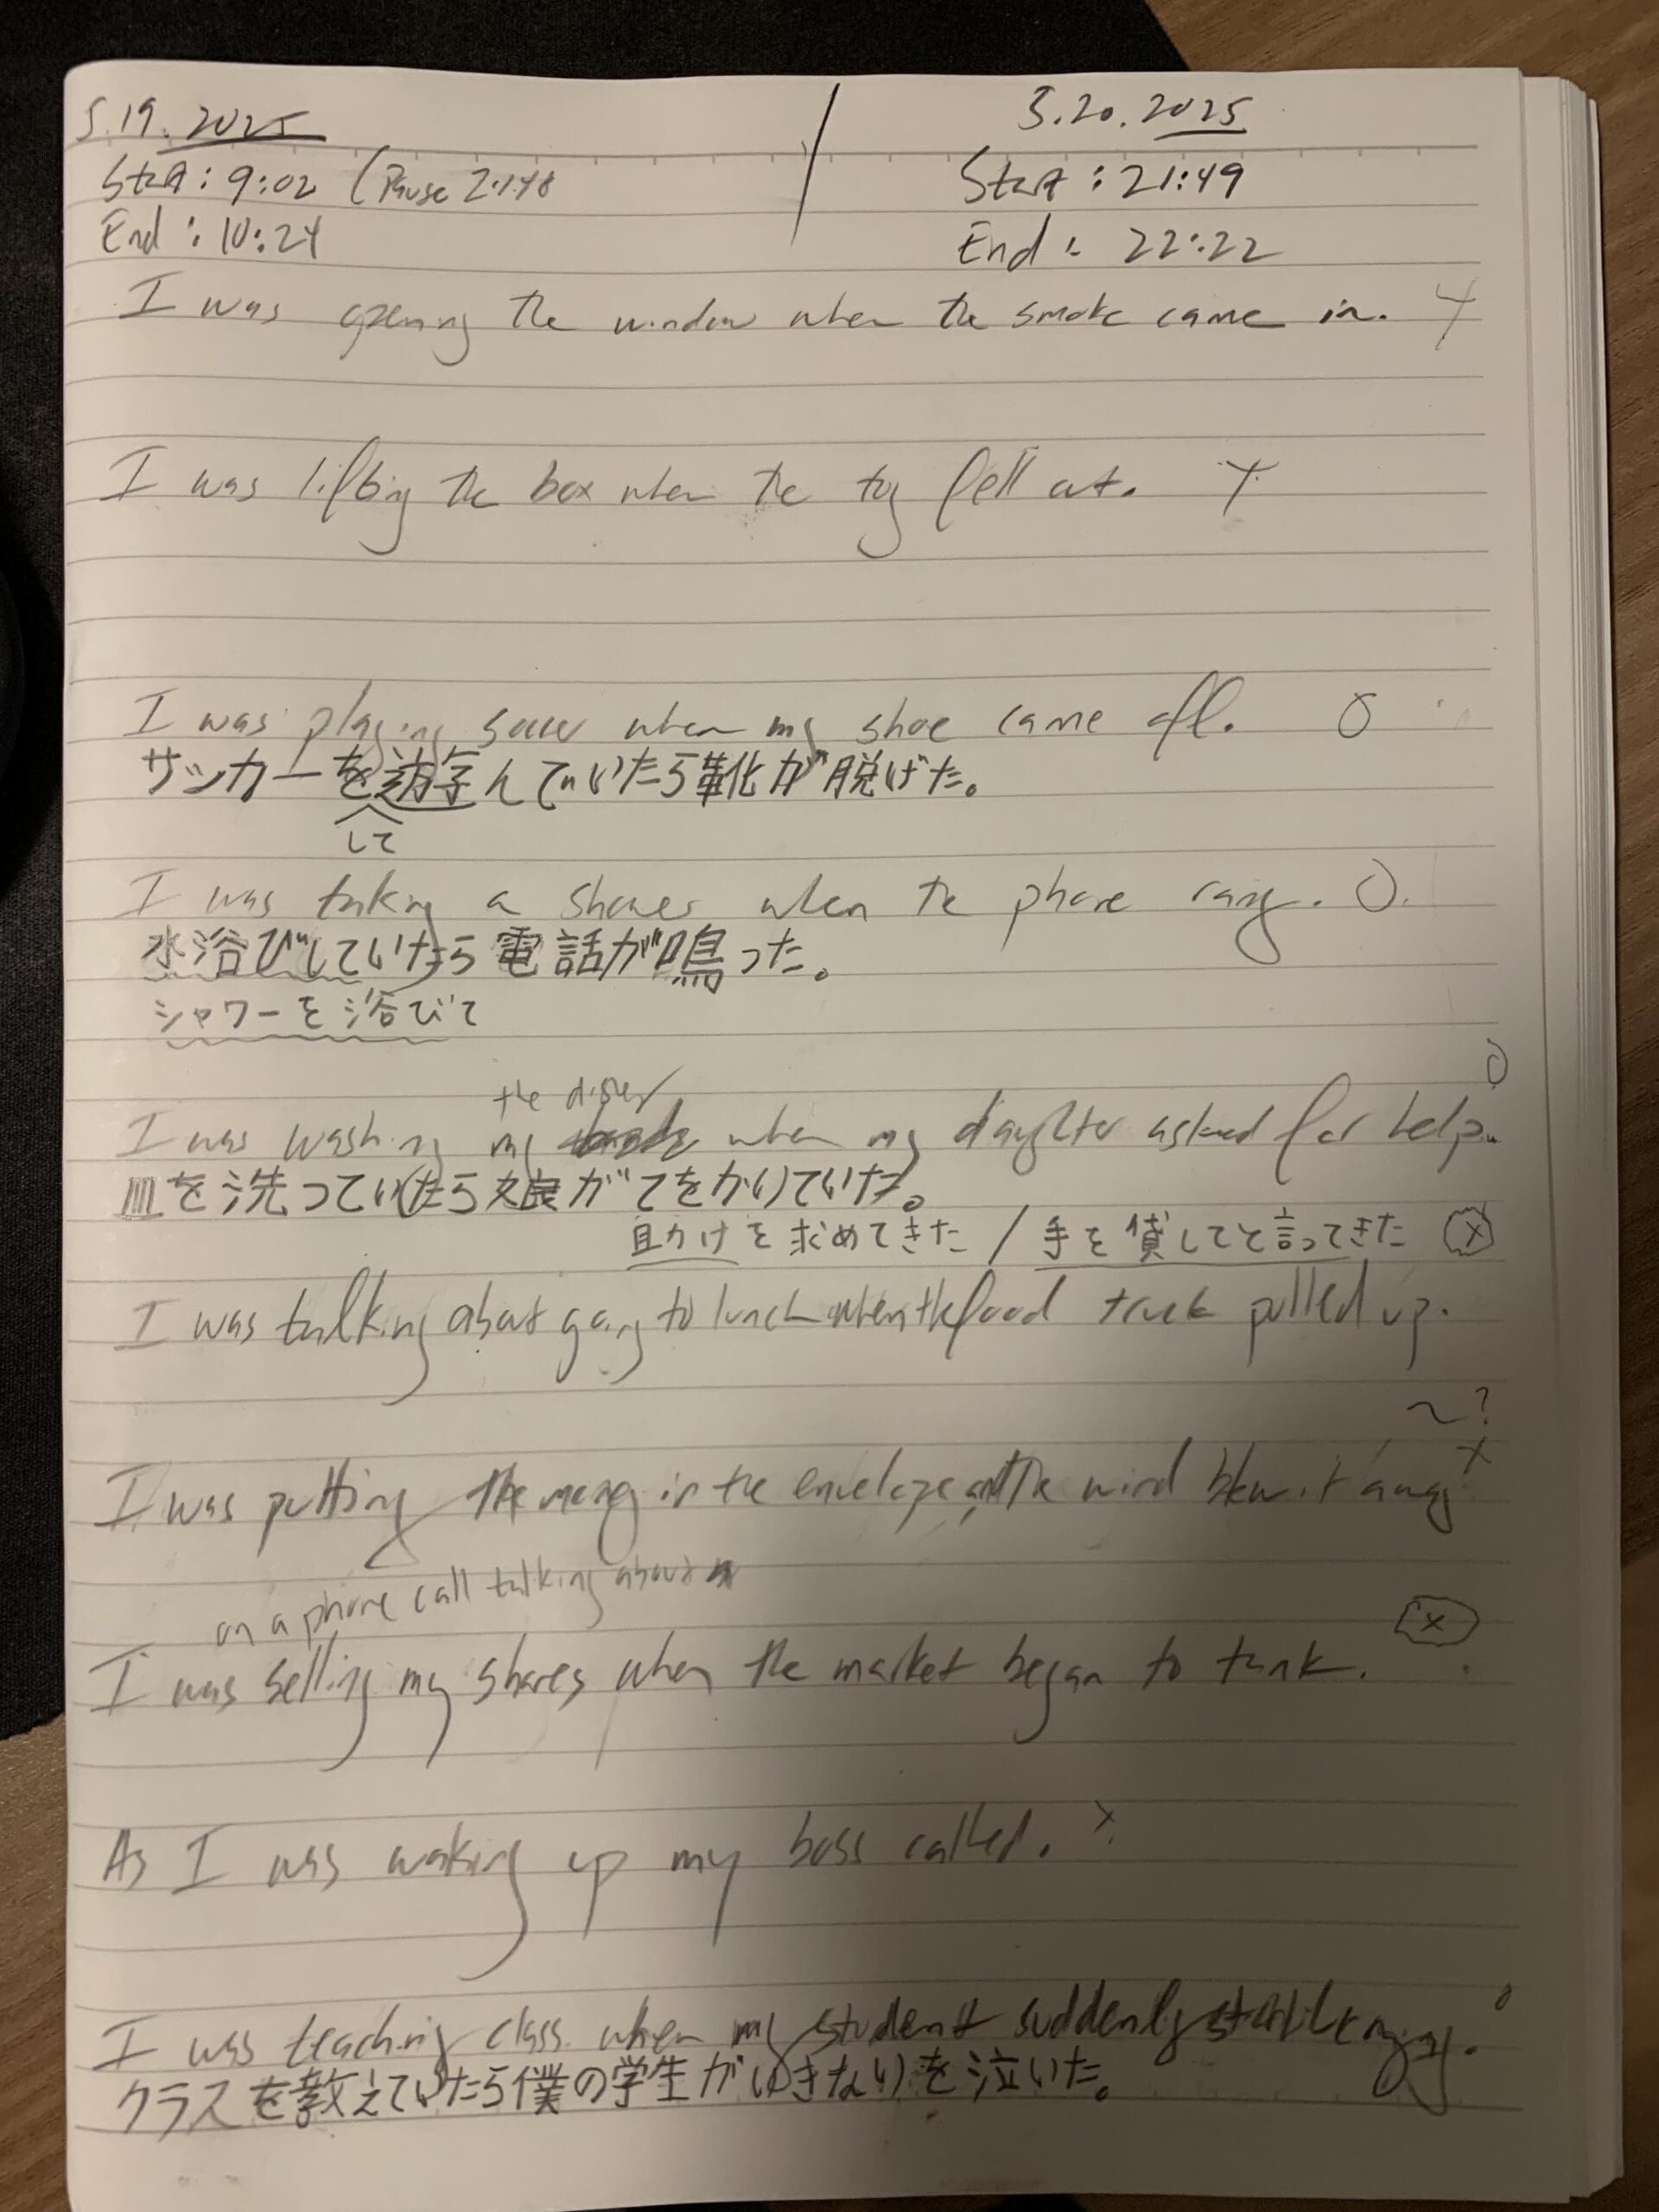 5.19.2025
Start: 9:02 (Pause
End: 10:24
5.20.2025
Start: 21:49
End: 22:22
I was opening the window when the smoke came in. X
I was lifting the box when the toy fell out. X
I was playing soccer when my shoe came off. O
サッカーを遊んでいたら靴が脱げた。
して
I was taking a shower when the phone rang. O.
水浴びしていたら電話が鳴った。
シャワーを浴びて
O
the dishes
I was washing my when my daughter asked for help.
皿を洗っていたら娘がてをかりていた。
助けを求めてきた / 手を貸してと言ってきた X
I was talking about going to lunch when the food truck pulled up.
~?
I was putting the money in the envelope and the wind blew it away X
on a phone call talking about
X
I was selling my shares when the market began to tank.
As I was waking up my boss called. X
I was teaching class when my student suddenly started crying. O
クラスを教えていたら僕の学生がいきなりを泣いた。